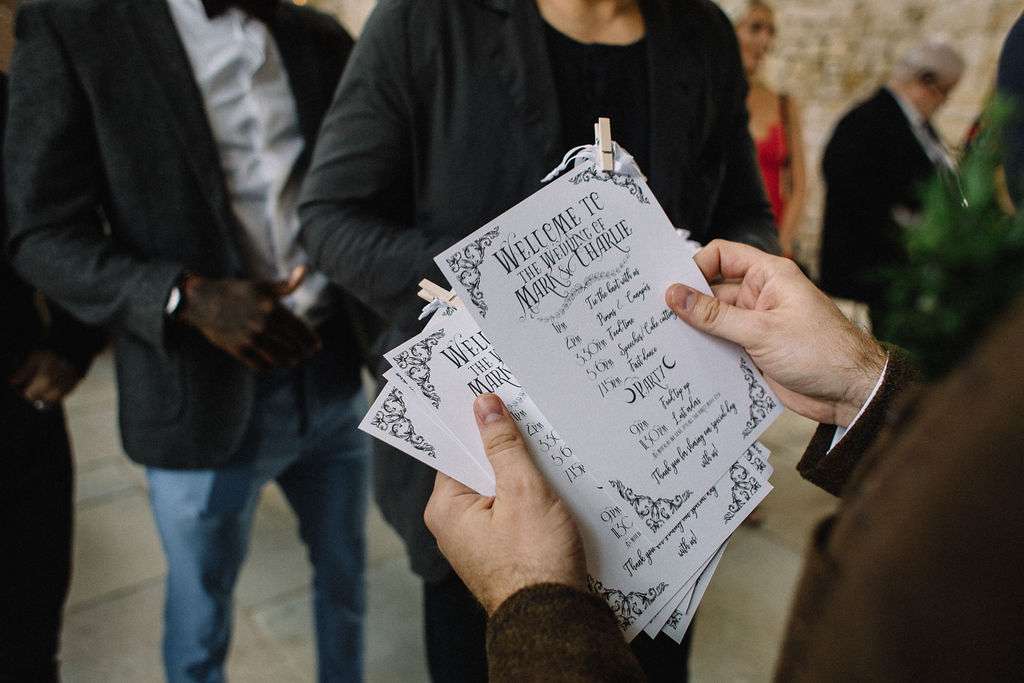 Welcome to
the Wedding of
Mark & Charlie
1pm Tie the knot with us
2pm Pimms & Canapes
3:30pm Food time
5pm Speeches/Cake cutting
7:15pm First dance
Party
9pm Food top up
11:30pm Last orders
Thank you for sharing our special day
with us!
Wel
the
Mark
1pm
2pm
3:30
5.
7:15
9pm
11:30
Thank you for
special day
with us!